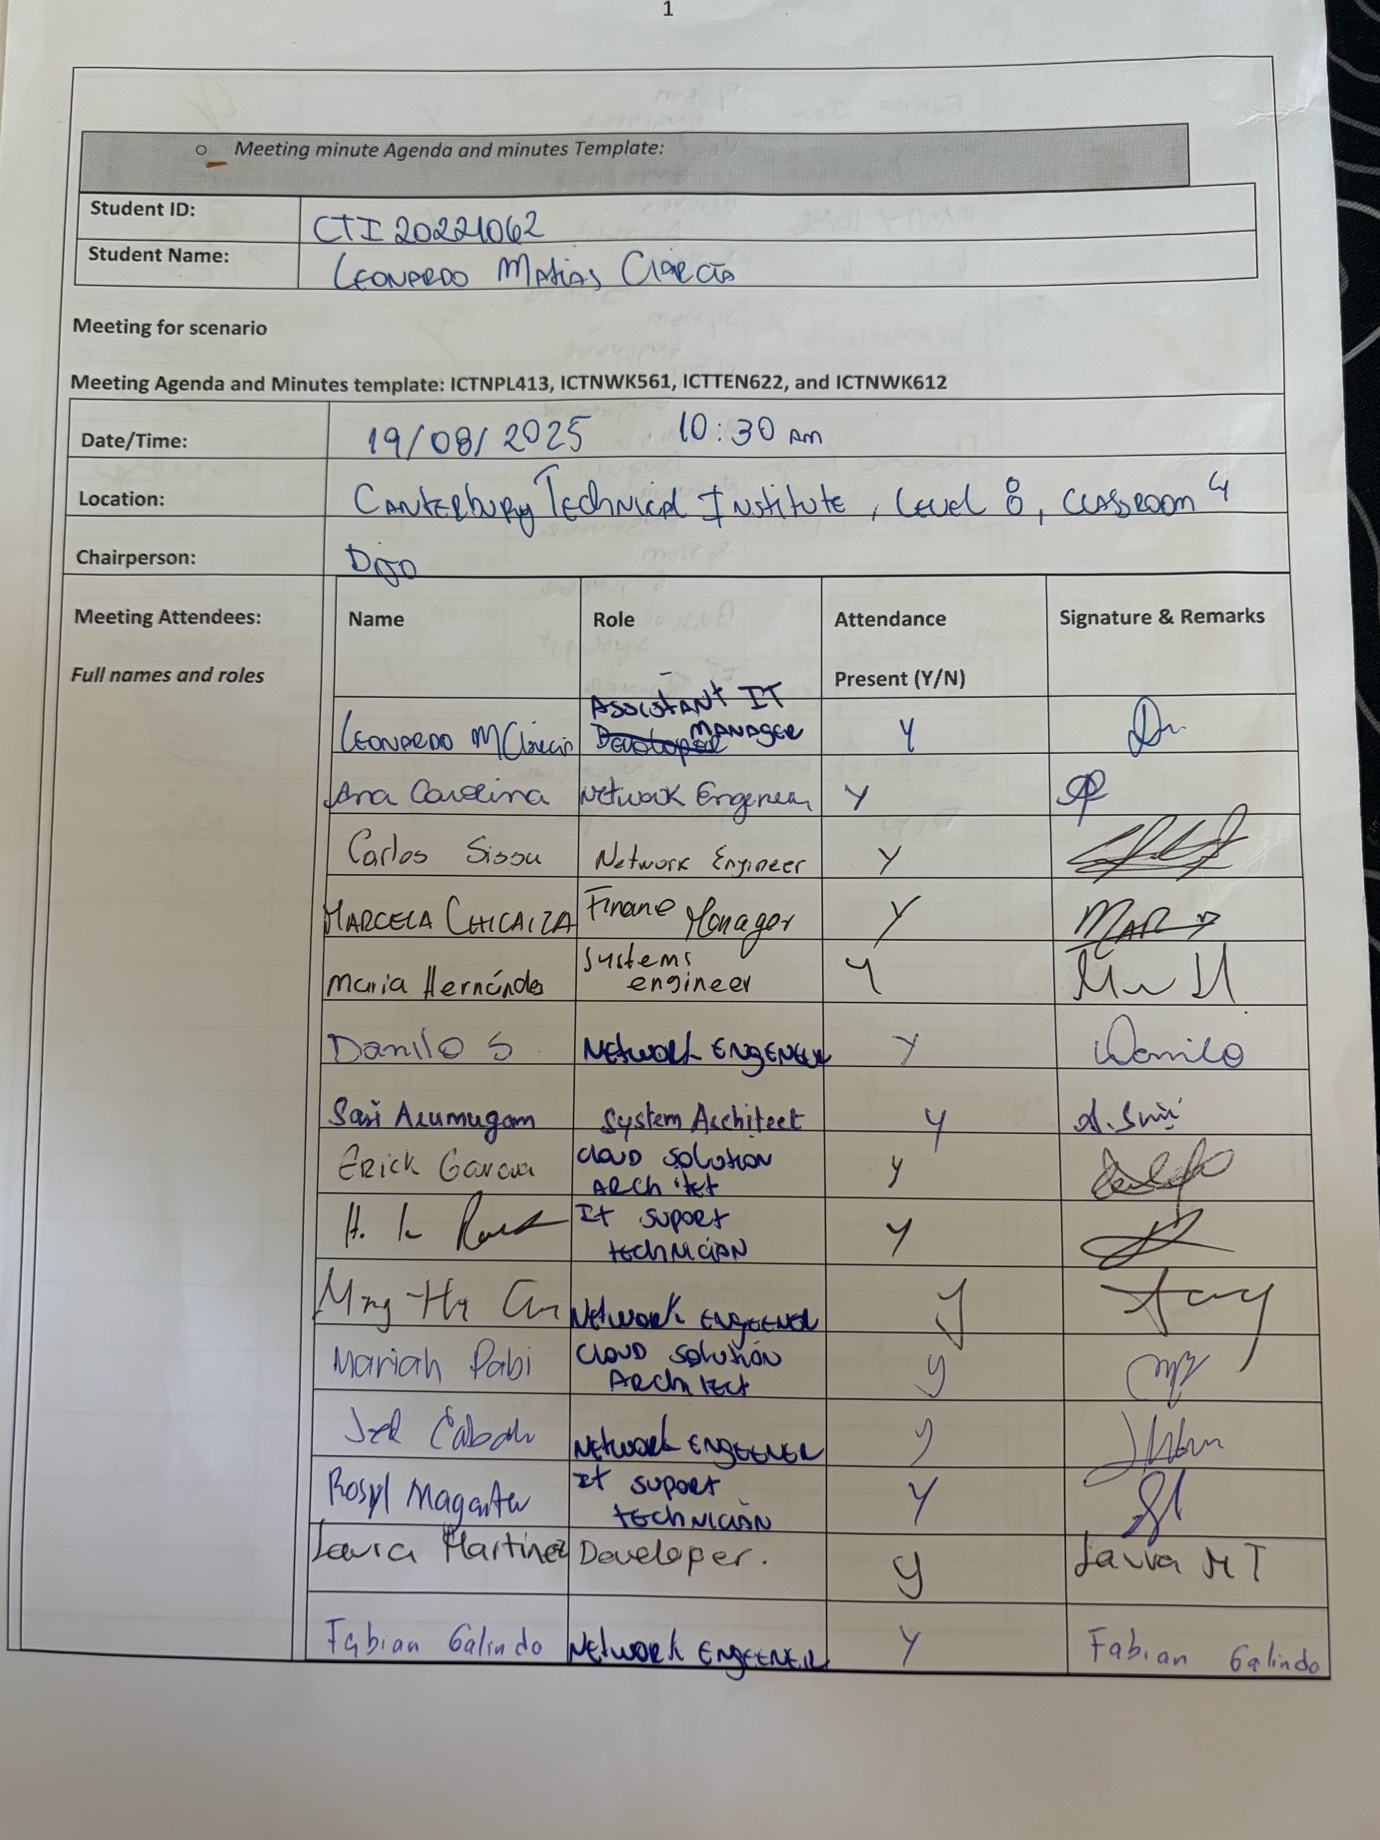 1
Meeting minute Agenda and minutes Template:
Student ID: CTI 20221062
Student Name: LEONARDO MATIAS
Meeting for scenario
Meeting Agenda and Minutes template: ICTNPL413, ICTNWK561, ICTTEN622, and ICTNWK612
Date/Time: 19/08/2025 10:30 AM
Location: CANTERBURY TECHNICAL INSTITUTE, LEVEL 8, CLASSROOM 4
Chairperson: Dijo
Meeting Attendees: Name Role Attendance Signature & Remarks
Full names and roles Present (Y/N)
ASSISTANT IT
LEONARDO MANAGER Y
Ana Carolina Network Y
Carlos Sissu Network Engineer Y
MARCELA CHICAIZA Manager Y
Systems
Maria Hernández engineer Y
Danilo S NETWORK ENGENEER Y Danilo
Sasi Arumugam System Architect Y
Erick Garcia CLOUD SOLUTION
Y
IT SUPORT
H. TECHNICIAN Y
NETWORK ENGEENER Y
Mariah Pabi CLOUD SOLUTION
ARCHITECT Y
NETWORK ENGEENER Y
IT SUPORT
Rosyl TECHNICIAN Y
Laura Martinez Developer. Y Laura M T
Fabian Galindo NETWORK ENGEENER Y Fabian Galindo